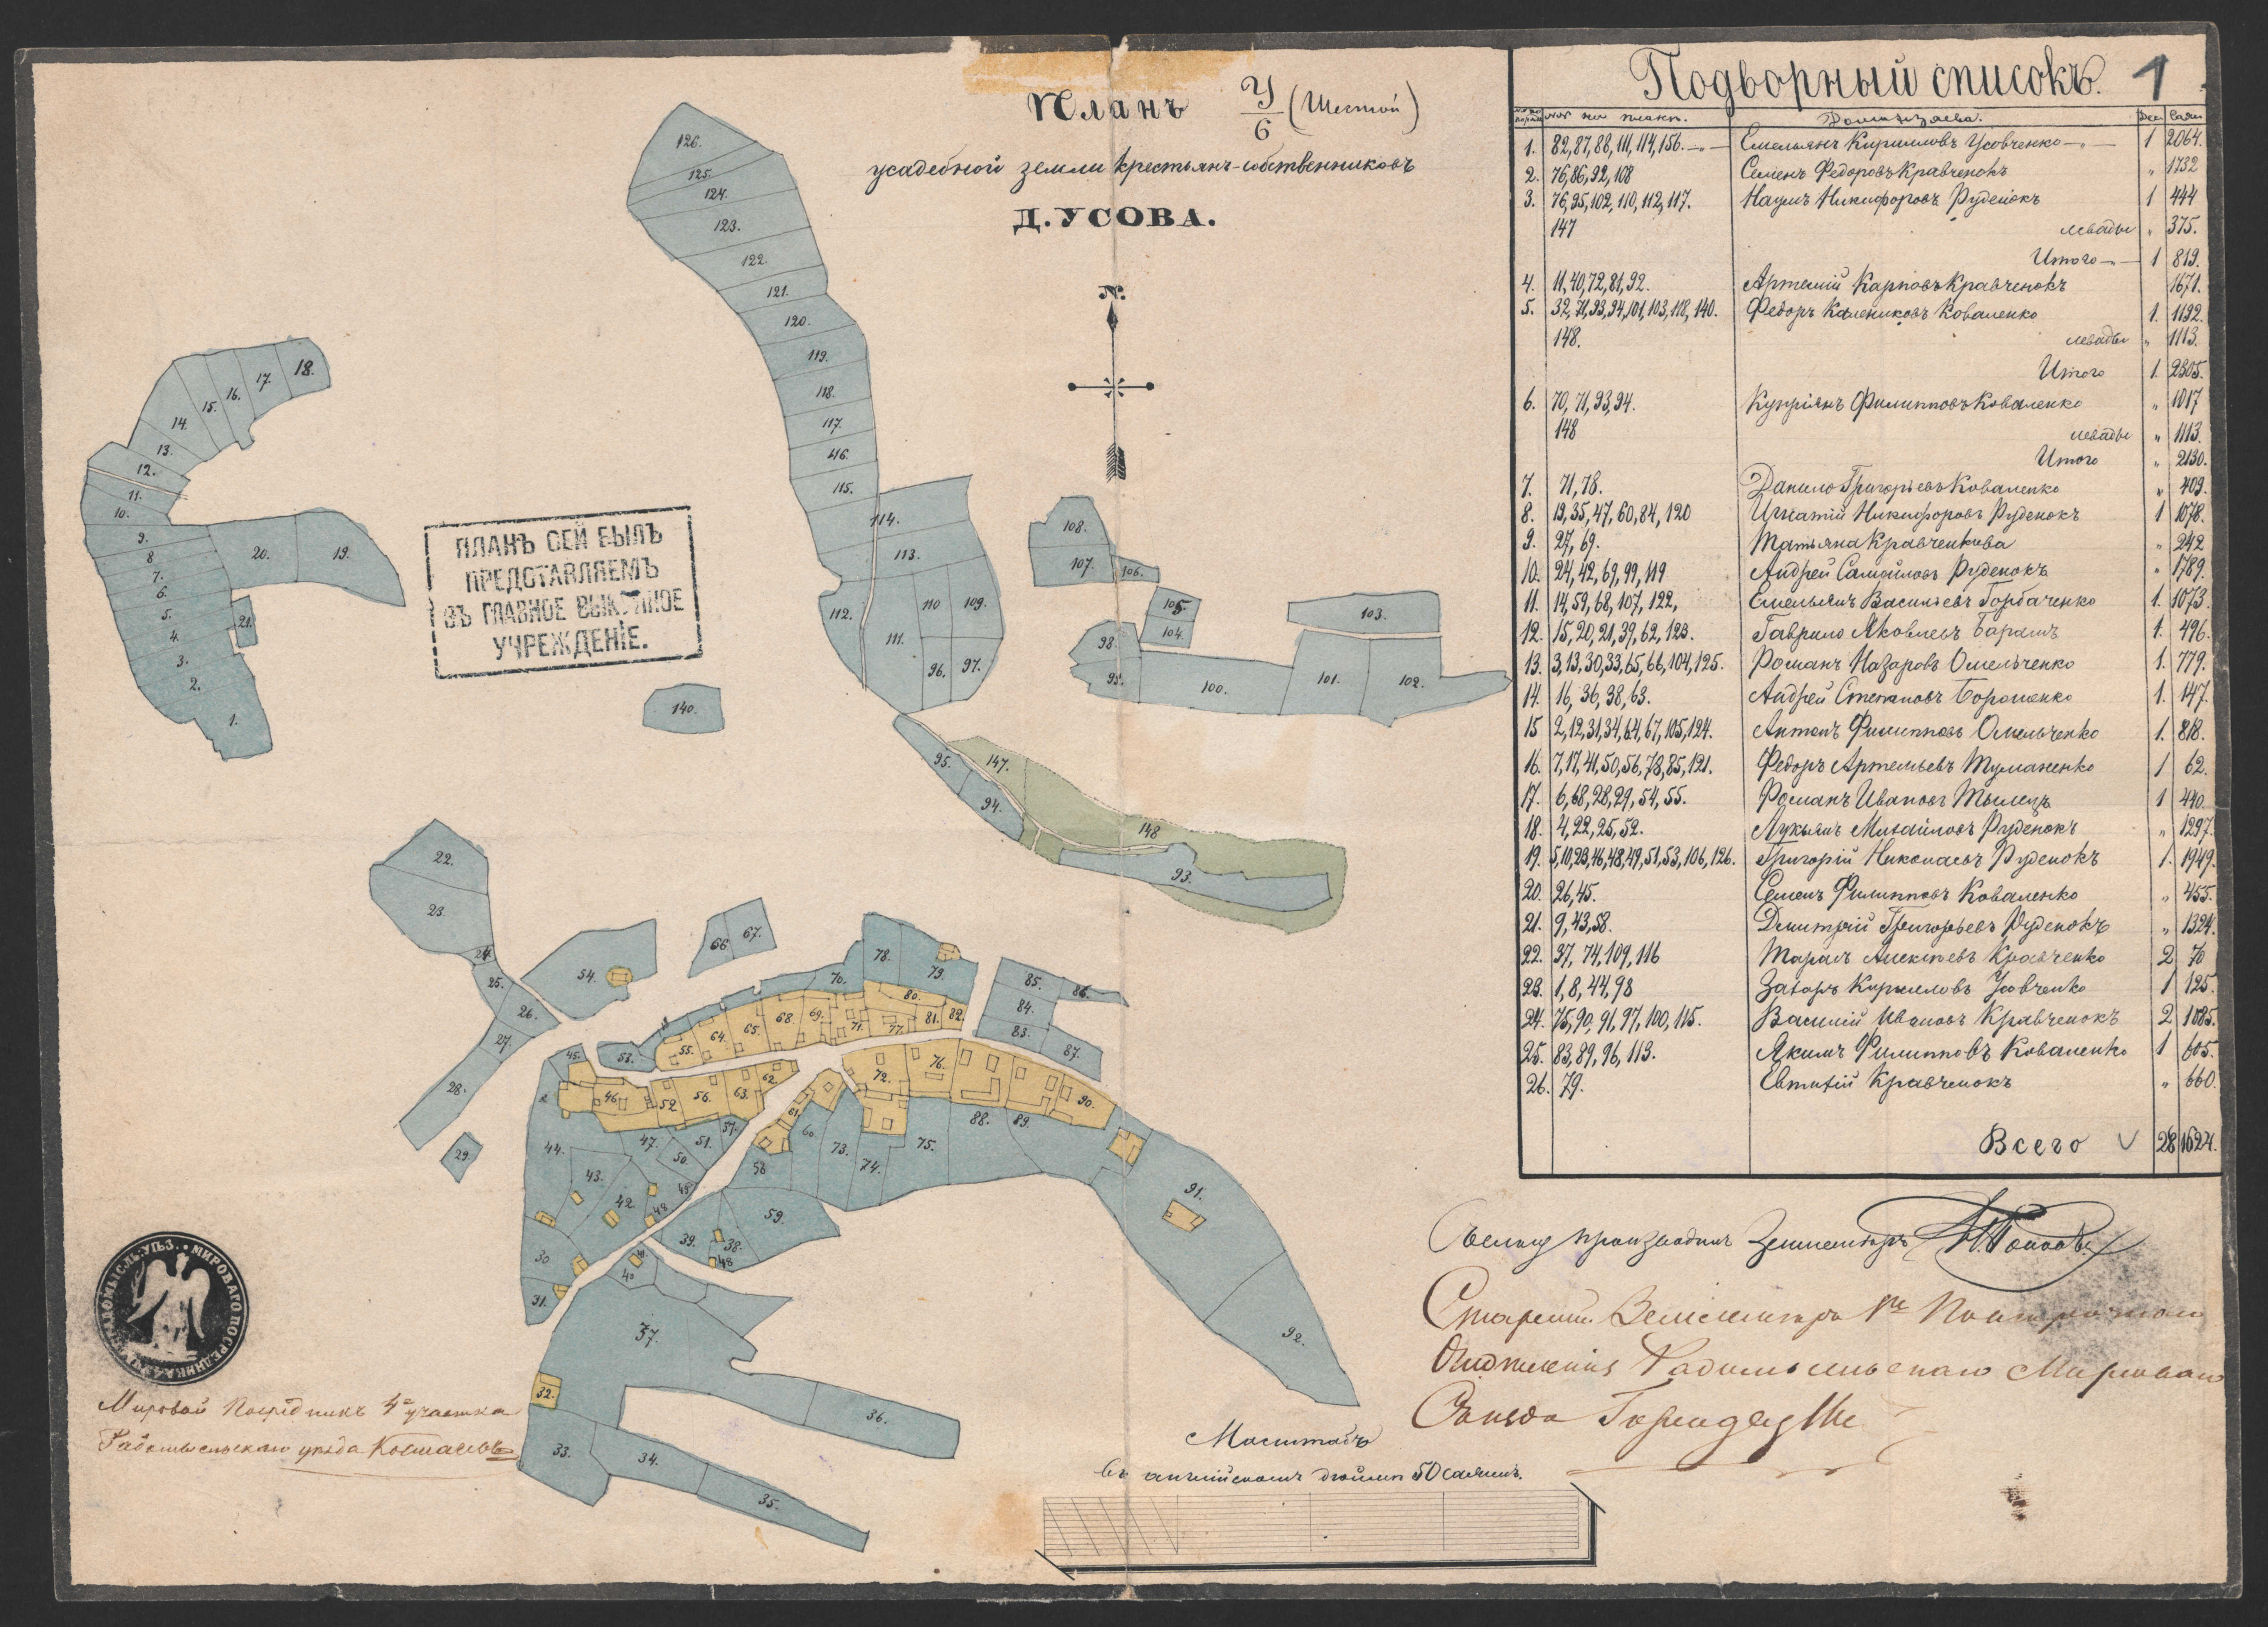 Планъ У/6 (Шестой)
усадебной земли крестьянъ-собственниковъ
Д. УСОВА.
N.
ПЛАНЪ СЕЙ БЫЛЪ
ПРЕДСТАВЛЯЕМЪ
ВЪ ГЛАВНОЕ ВЫКУПНОЕ
УЧРЕЖДЕНІЕ.
Подворный списокъ. 1
№№ на планѣ. Домохозяева. Дес. Саж.
1. 82, 87, 88, 111, 114, 156. Емельянъ Кирилловъ Усовченко 1 2064.
2. 76, 86, 92, 108 Семенъ Федоровъ Кравченокъ " 1732
3. 76, 95, 102, 110, 112, 117. Наумъ Никифоровъ Руденокъ 1 444
147 левады " 375.
Итого 1 819.
4. 11, 40, 72, 81, 92. Артемій Карповъ Кравченокъ 1671.
5. 32, 71, 93, 94, 101, 103, 118, 140. Федоръ Калениковъ Коваленко 1. 1192.
148. левады " 1113.
Итого 1. 2305.
6. 70, 71, 93, 94. Купріянъ Филипповъ Коваленко " 1017
148 левады " 1113.
Итого " 2130.
7. 71, 78. Данило Григорьевъ Коваленко " 409.
8. 19, 35, 47, 60, 84, 120 Игнатій Никифоровъ Руденокъ 1 1078.
9. 27, 69. Татьяна Кравченкова " 242
10. 24, 42, 69, 99, 119 Андрей Самойловъ Руденокъ " 1789.
11. 14, 59, 68, 107, 122, Емельянъ Васильевъ Горбаченко 1. 1073.
12. 15, 20, 21, 39, 62, 123. Гаврило Яковлевъ Барашъ 1. 496.
13. 3, 13, 30, 33, 65, 66, 104, 125. Романъ Назаровъ Омельченко 1. 779.
14. 16, 36, 38, 63. Андрей Степановъ Борошенко 1. 147.
15 2, 12, 31, 34, 64, 67, 105, 124. Антонъ Филипповъ Омельченко 1. 818.
16. 7, 17, 41, 50, 56, 78, 85, 121. Федоръ Артемьевъ Тумаменко 1 62.
17. 6, 68, 28, 29, 54, 55. Романъ Ивановъ 1 440.
18. 4, 22, 25, 52. Лукьянъ Михайловъ Руденокъ " 1297.
19. 5, 10, 23, 46, 48, 49, 51, 53, 106, 126. Григорій Николаевъ Руденокъ 1. 1949.
20. 26, 45. Семенъ Филипповъ Коваленко " 455.
21. 9, 43, 58. Дмитрій Григорьевъ Руденокъ " 1324.
22. 37, 74, 109, 116 Тарасъ Алексѣевъ Кравченко 2 70
23. 1, 8, 44, 98 Захаръ Кирилловъ Усовченко 1 125.
24. 75, 90, 91, 97, 100, 115. Василій Ивановъ Кравченокъ 2 1085.
25. 83, 89, 96, 113. Якимъ Филипповъ Коваленко 1 605.
26. 79. Евтихій Кравченокъ " 660.
Всего 28 1624.
126.
125.
124.
123.
122.
121.
120.
119.
118.
117.
116.
115.
114.
113.
112.
111.
110
109.
96.
97.
18.
17.
16.
15.
14.
13.
12.
11.
10.
9.
8
7.
6.
5.
4.
3.
2.
1.
20.
19.
21.
140.
108.
107.
106.
105.
104.
103.
98.
99.
100.
101.
102.
95.
94.
147.
148
93.
22.
23.
24.
25.
26.
27.
28.
29.
54.
66
67.
70.
78.
79.
80.
81.
82.
85.
86.
84.
83.
87.
53.
55.
64.
65.
68.
69.
71.
77.
45.
46.
52.
56.
63.
62.
72.
76.
90.
44.
47.
51.
57.
50.
43.
42.
49.
48
61.
60.
58
73.
74.
75.
88.
89.
91.
92.
59.
39.
38.
30
31.
40
37.
32.
33.
34.
35.
36.
РАДОМЫСЛЬ. УѢЗ. МИРОВАГО ПОСРЕДНИКА 4 УЧ.
Мировой Посредникъ 4го участка
Радомысльскаго уѣзда
Съемку производилъ Землемѣръ Поповъ
Старшій Землемѣръ
Отдѣленія Радомысльскаго Мироваго
Съѣзда
Масштабъ
въ англійскомъ дюймѣ 50 саженъ.